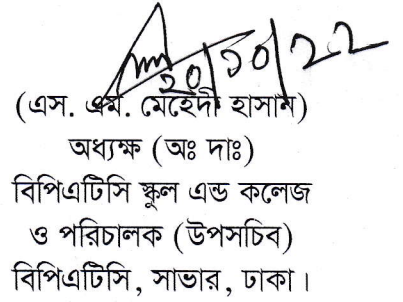 20/10/22
(এস. এম. মেহেদী হাসান)
অধ্যক্ষ (অঃ দাঃ)
বিপিএটিসি স্কুল এন্ড কলেজ
ও পরিচালক (উপসচিব)
বিপিএটিসি, সাভার, ঢাকা।